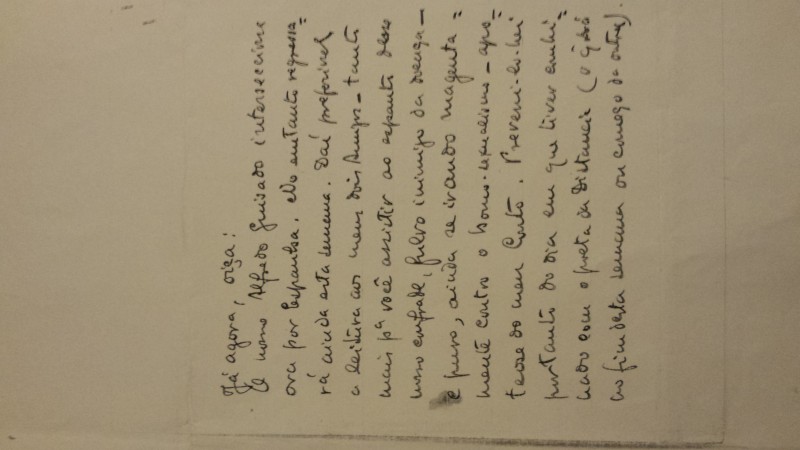 Já agora, oiça:
O nosso Alfredo Guisado intersecciona
ora por Espanha. No entanto regressa=
rá ainda esta semana. Daí preferivel
a leitura aos meus dois Amigos – tanto
mais pª você assistir ao espanto desse
nosso confrade, fulvo inimigo da doença –
e puro, ainda se irando magenta=
mente contra o homo-sexualismo – apo=
teose do meu Conto. Preveni-lo-hei
portanto do dia em que tiver combi=
nado com o poeta da Distancia (o q será
no fim desta semana ou começo da outra).